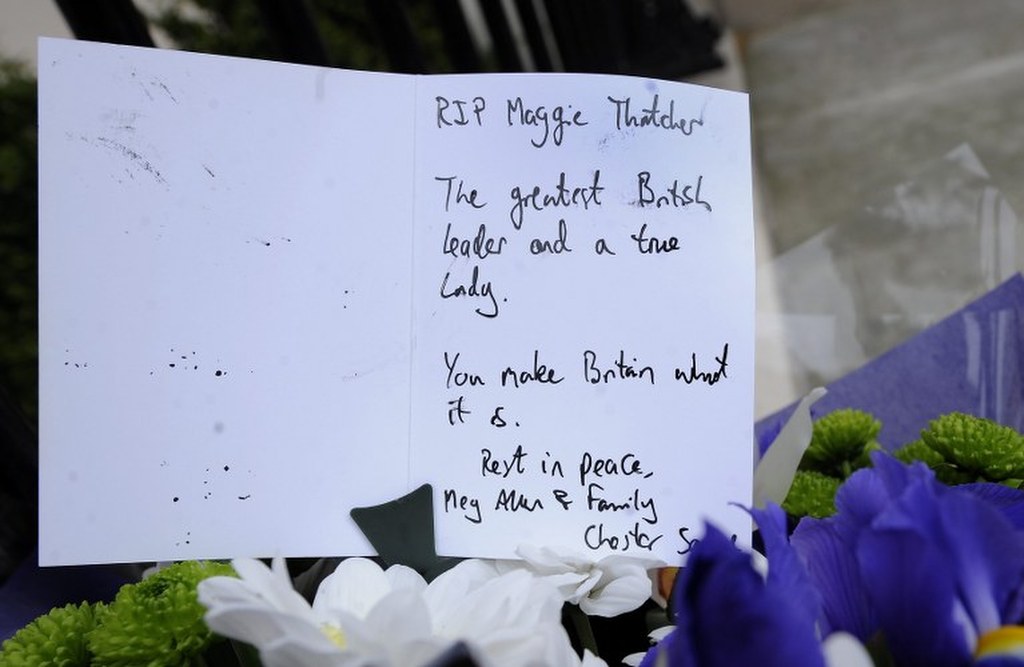 RIP Maggie Thatcher
The greatest British
leader and a true
Lady.
You make Britain what
it is.
Rest in peace,
Meg Allen & Family
Chester